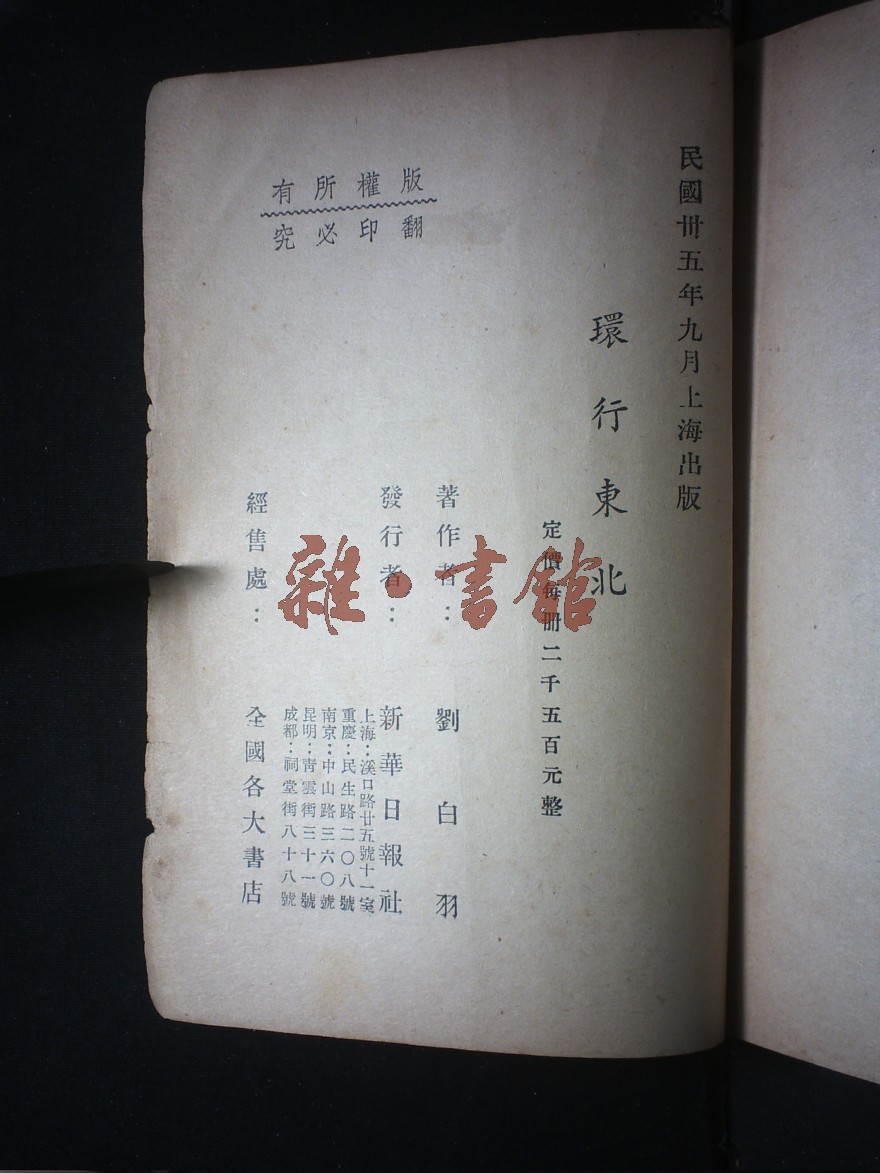 民國卅五年九月上海出版
環行東北
定價每冊二千五百元整
著作者：劉白羽
發行者：新華日報社
上海：溪口路廿五號十一室
重慶：民生路二〇八號
南京：中山路三六〇號
昆明：青雲街三十一號
成都：祠堂街八十八號
經售處：全國各大書店
版權所有
翻印必究
雜·書館